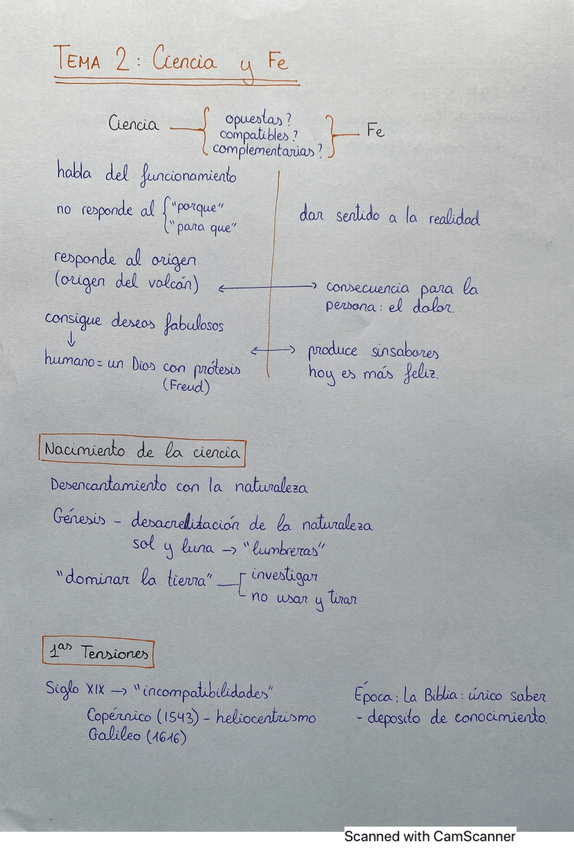 TEMA 2: Ciencia y Fe
Ciencia
opuestas?
compatibles?
complementarias?
Fe
habla del funcionamiento
no responde al
"porque"
"para que"
dar sentido a la realidad
responde al origen
(origen del volcán)
consecuencia para la
persona: el dolor.
consigue deseos fabulosos
↓
humano = un Dios con prótesis
(Freud)
produce sinsabores
hoy es más feliz.
Nacimiento de la ciencia
Desencantamiento con la naturaleza
Génesis - desacralización de la naturaleza
sol y luna → "lumbreras"
"dominar la tierra"
investigar
no usar y tirar
1as Tensiones
Siglo XIX → "incompatibilidades"
Copérnico (1543) - heliocentrismo
Galileo (1616)
Época: La Biblia: único saber
- deposito de conocimiento.
Scanned with CamScanner